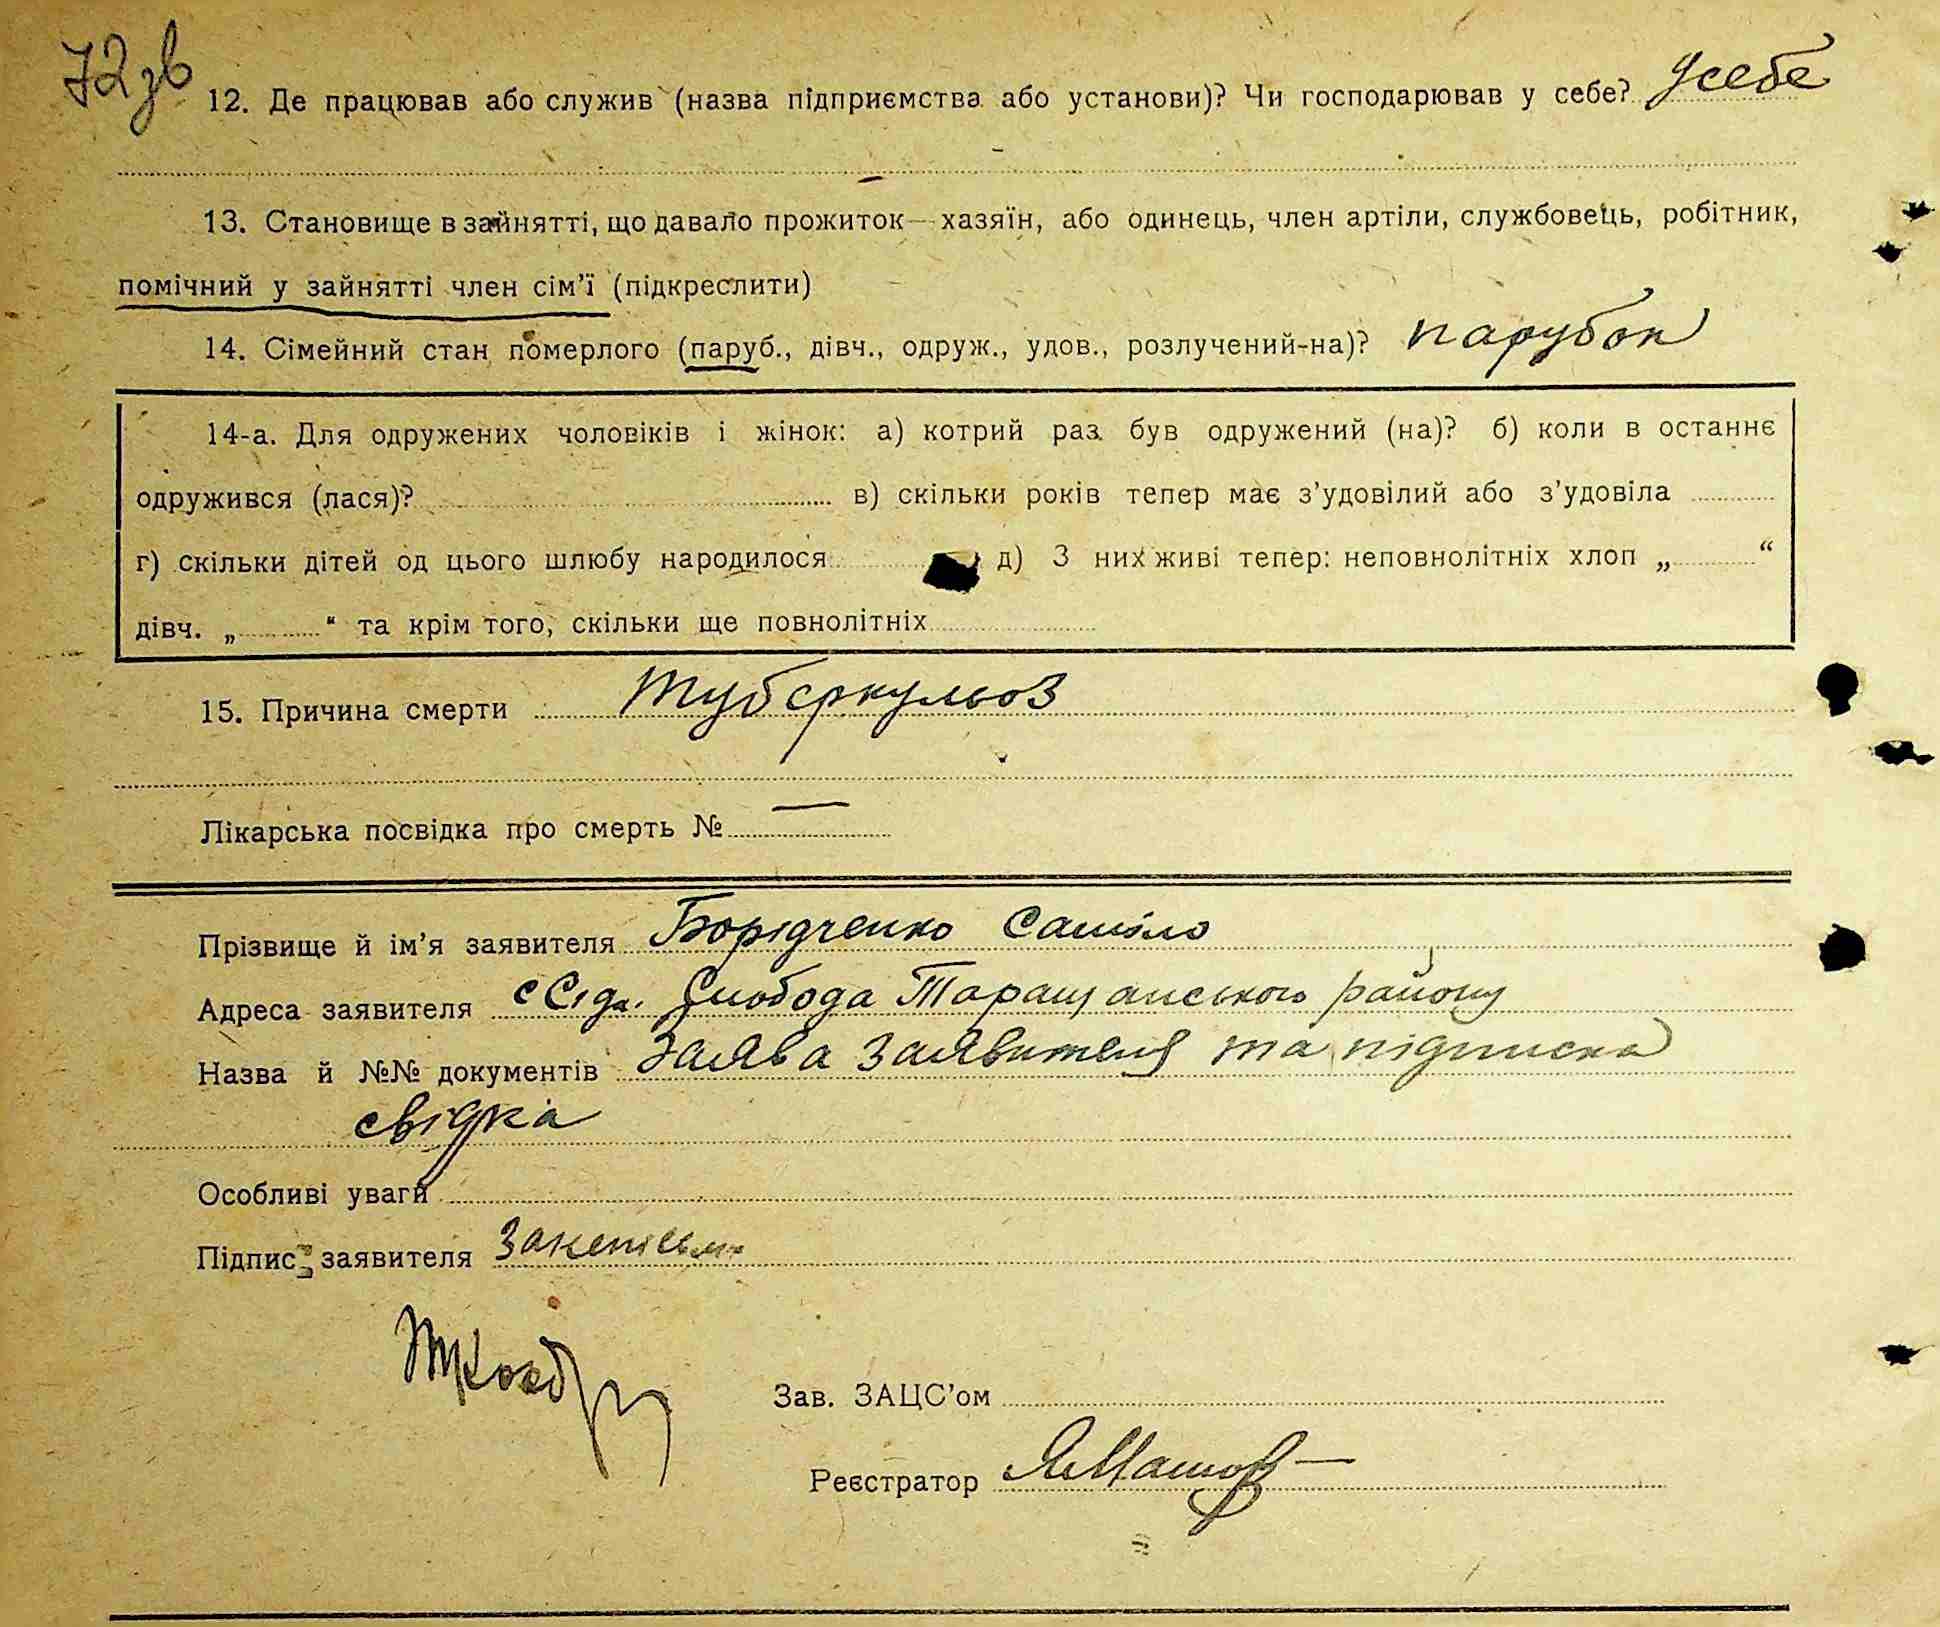 72зв
12. Де працював або служив (назва підприємства або установи)? Чи господарював у себе? усебе
13. Становище в зайнятті, що давало прожиток — хазяїн, або одинець, член артіли, службовець, робітник,
помічний у зайнятті член сім'ї (підкреслити)
14. Сімейний стан померлого (паруб., дівч., одруж., удов., розлучений-на)? парубок
14-а. Для одружених чоловіків і жінок: а) котрий раз був одружений (на)? б) коли в останнє
одружився (лася)? в) скільки років тепер має з'удовілий або з'удовіла
г) скільки дітей од цього шлюбу народилося д) З них живі тепер: неповнолітніх хлоп „ “
дівч. „ “ та крім того, скільки ще повнолітніх
15. Причина смерти туберкульоз
Лікарська посвідка про смерть № —
Прізвище й ім'я заявителя Борідченко Самійло
Адреса заявителя Слобода Таращанського району
Назва й №№ документів Заява заявителя та підписка
свідка
Особливі уваги
Підпис заявителя
Зав. ЗАЦС'ом
Реєстратор